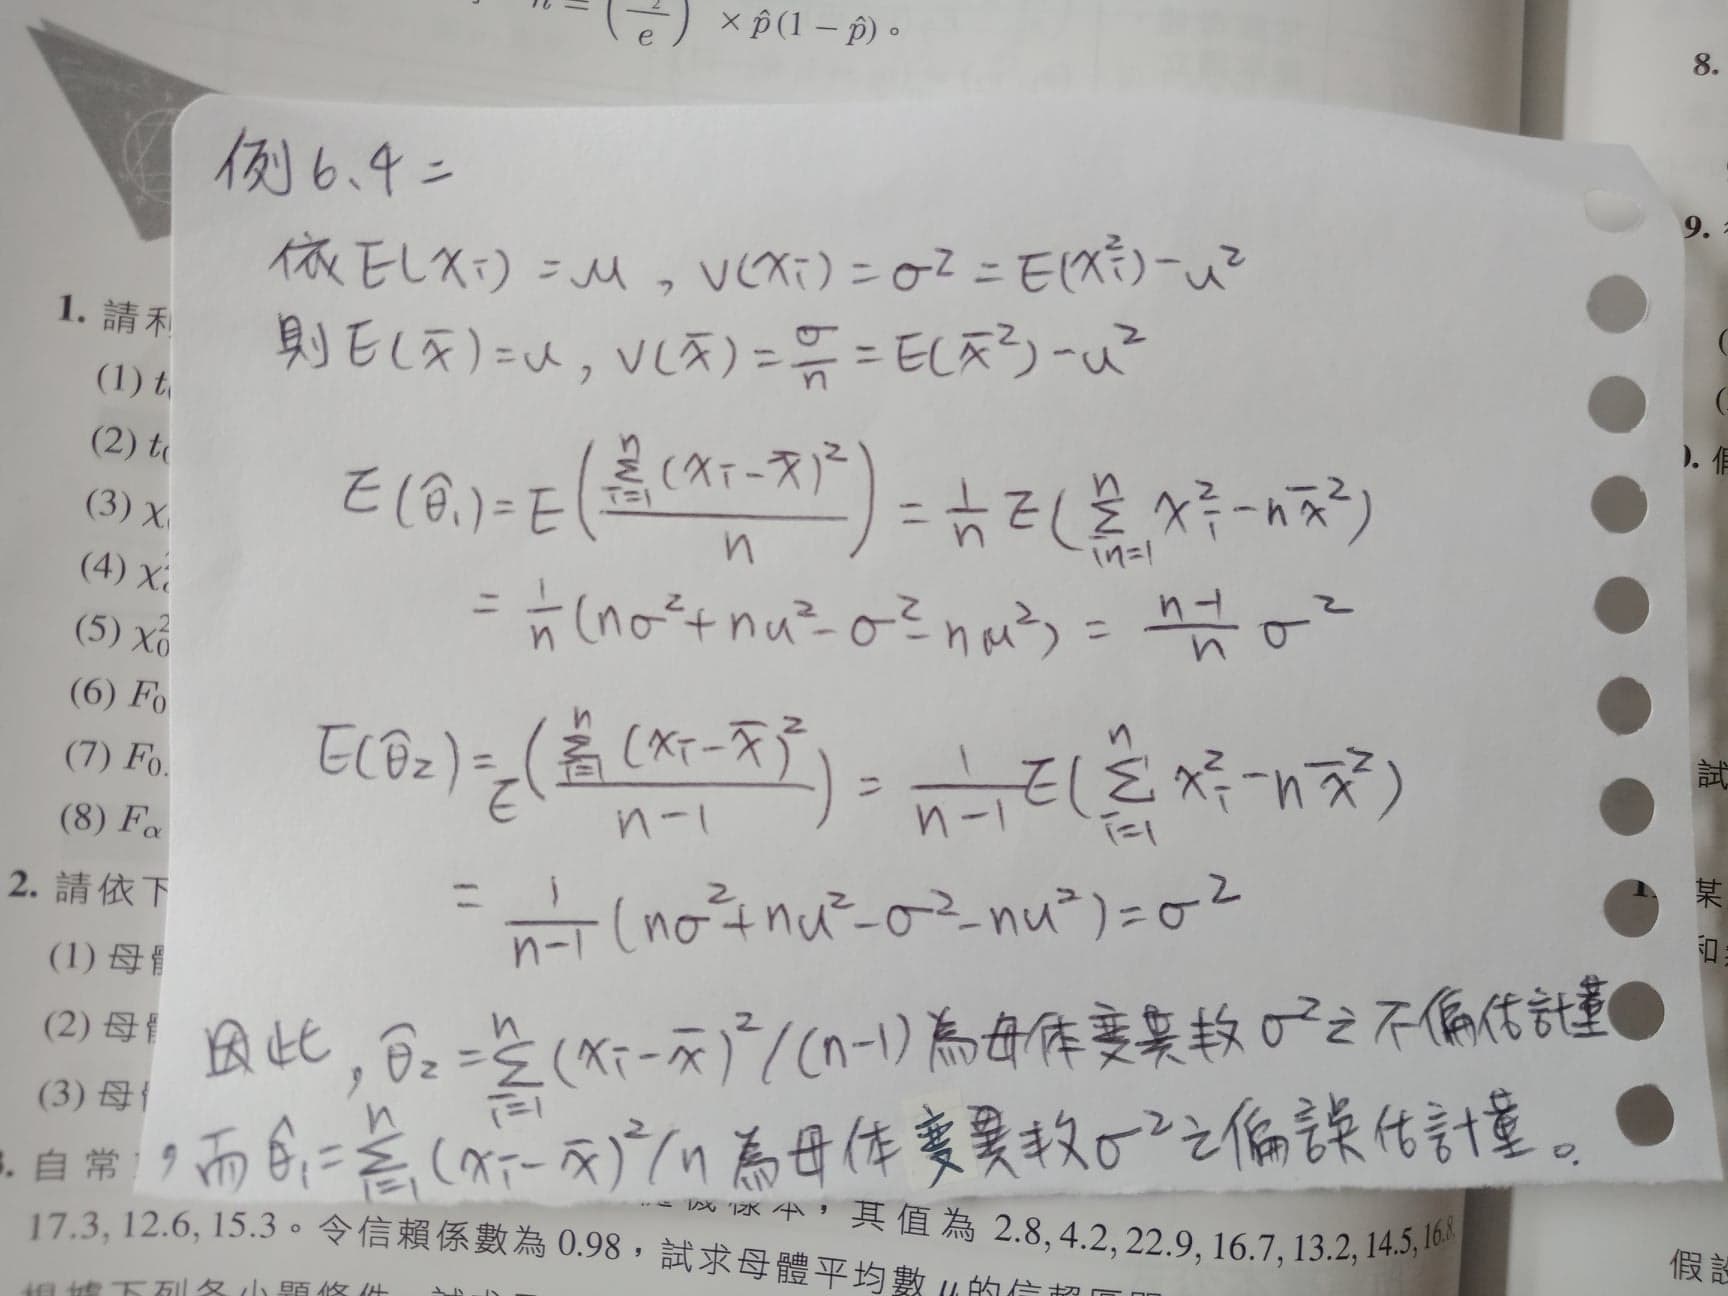 n = ( 2 / e ) × p̂(1 − p̂)。
例6、4=
依E(xi) = μ , V(xi) = σ² = E(xi²) − u²
則E(x̄) = u , V(x̄) = σ/n = E(x̄²) − u²
E(θ̂₁) = E( Σ_{i=1}^{n} (xi − x̄)² / n ) = 1/n E( Σ_{in=1}^{n} xi² − n x̄² )
= 1/n (nσ² + nu² − σ² − nμ²) = n−1/n σ²
E(θ̂₂) = E( Σ_{i=1}^{n} (xi − x̄)² / n−1 ) = 1/n−1 E( Σ_{i=1}^{n} xi² − n x̄² )
= 1/n−1 (nσ² + nu² − σ² − nu²) = σ²
因此 , θ̂₂ = Σ_{i=1}^{n} (xi − x̄)² / (n−1) 為母体變異数 σ² 之不偏估計量
, 而 θ̂₁ = Σ_{i=1}^{n} (xi − x̄)² / n 為母体變異数σ²之偏誤估計量。
1. 請利
(1) t
(2) t
(3) χ
(4) χ
(5) χ₀²
(6) F₀
(7) F₀.
(8) Fα
2. 請依下
(1) 母體
(2) 母體
(3) 母
自常
機樣本，其值為 2.8, 4.2, 22.9, 16.7, 13.2, 14.5, 16.8
17.3, 12.6, 15.3。令信賴係數為 0.98，試求母體平均數 μ 的信賴區間
根據下列各小題條件
8.
9.
試
某
和
假設